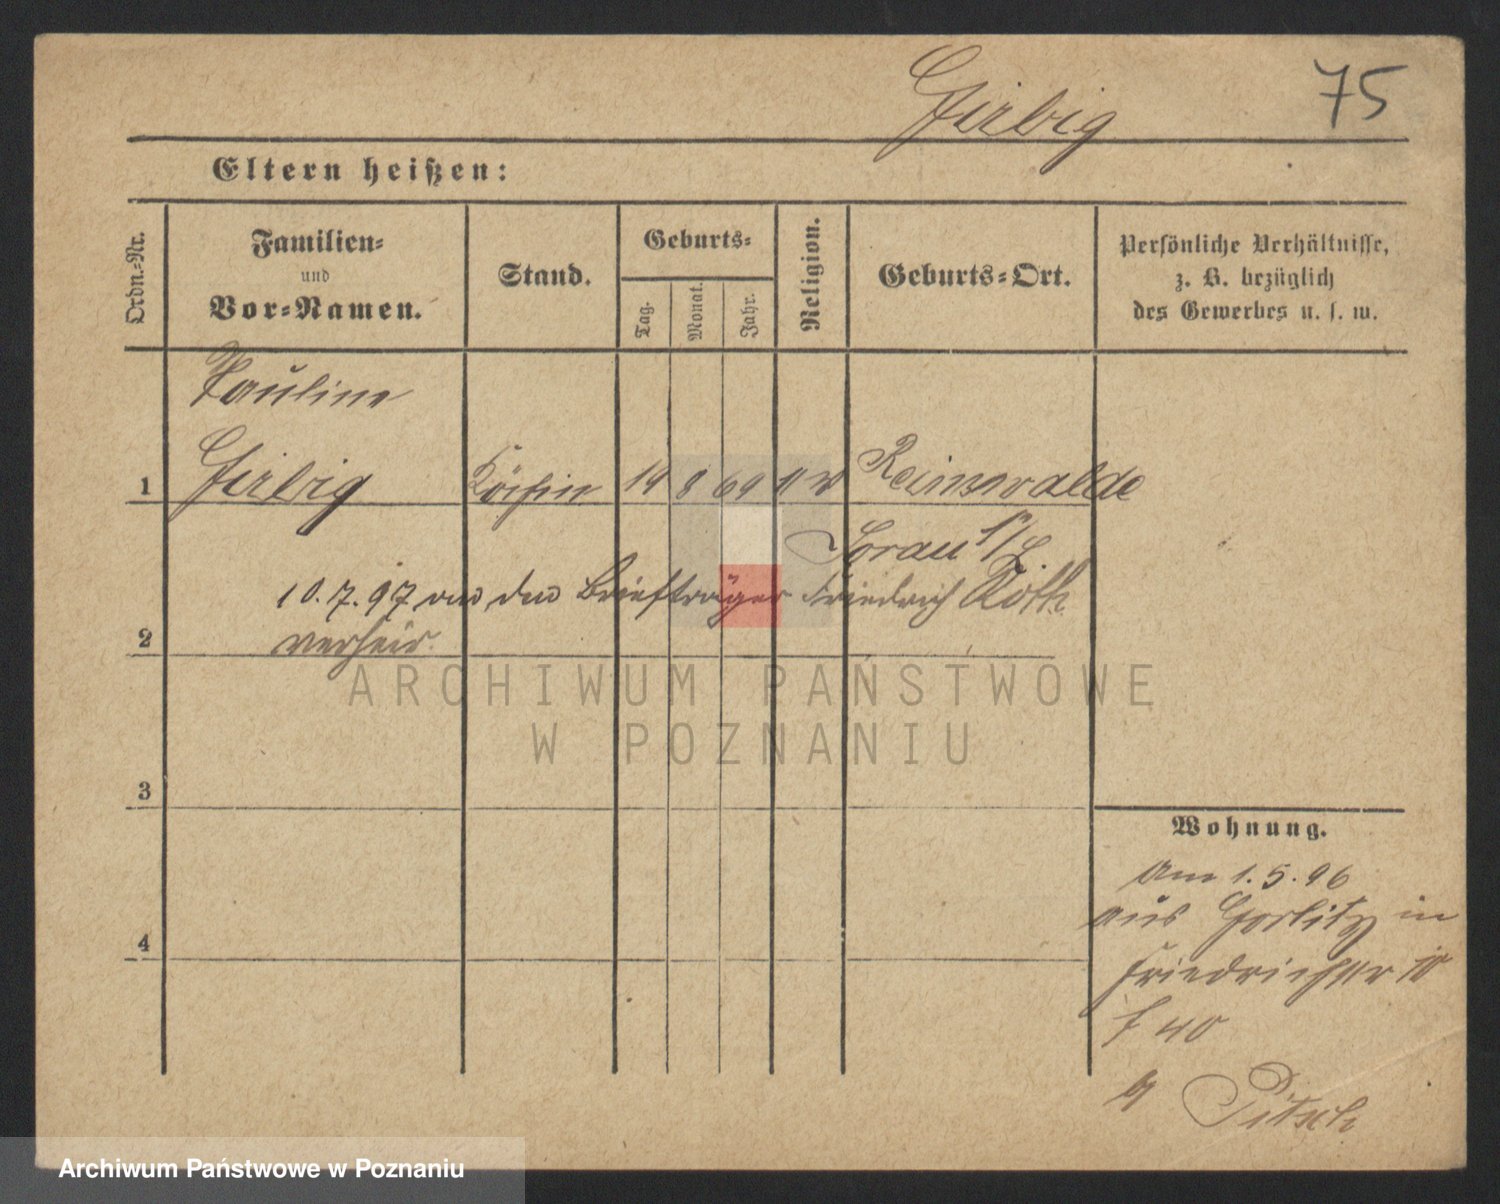 Girbig
75
Eltern heißen:
Ordn.-Nr.
Familien-
und
Vor-Namen.
Stand.
Geburts-
Tag.
Monat.
Jahr.
Religion.
Geburts-Ort.
Persönliche Verhältnisse,
z. B. bezüglich
des Gewerbes u. s. w.
Pauline
1 Girbig Köchin 14 8 69 Reinswalde
Sorau
10.7.97 den Briefträger Friedrich Röth
2 verheir.
ARCHIWUM PAŃSTWOWE
W POZNANIU
3
4
Wohnung.
Am 1.5.96
aus Görlitz in
Friedrichstr 10
f 40
Pitsch
Archiwum Państwowe w Poznaniu